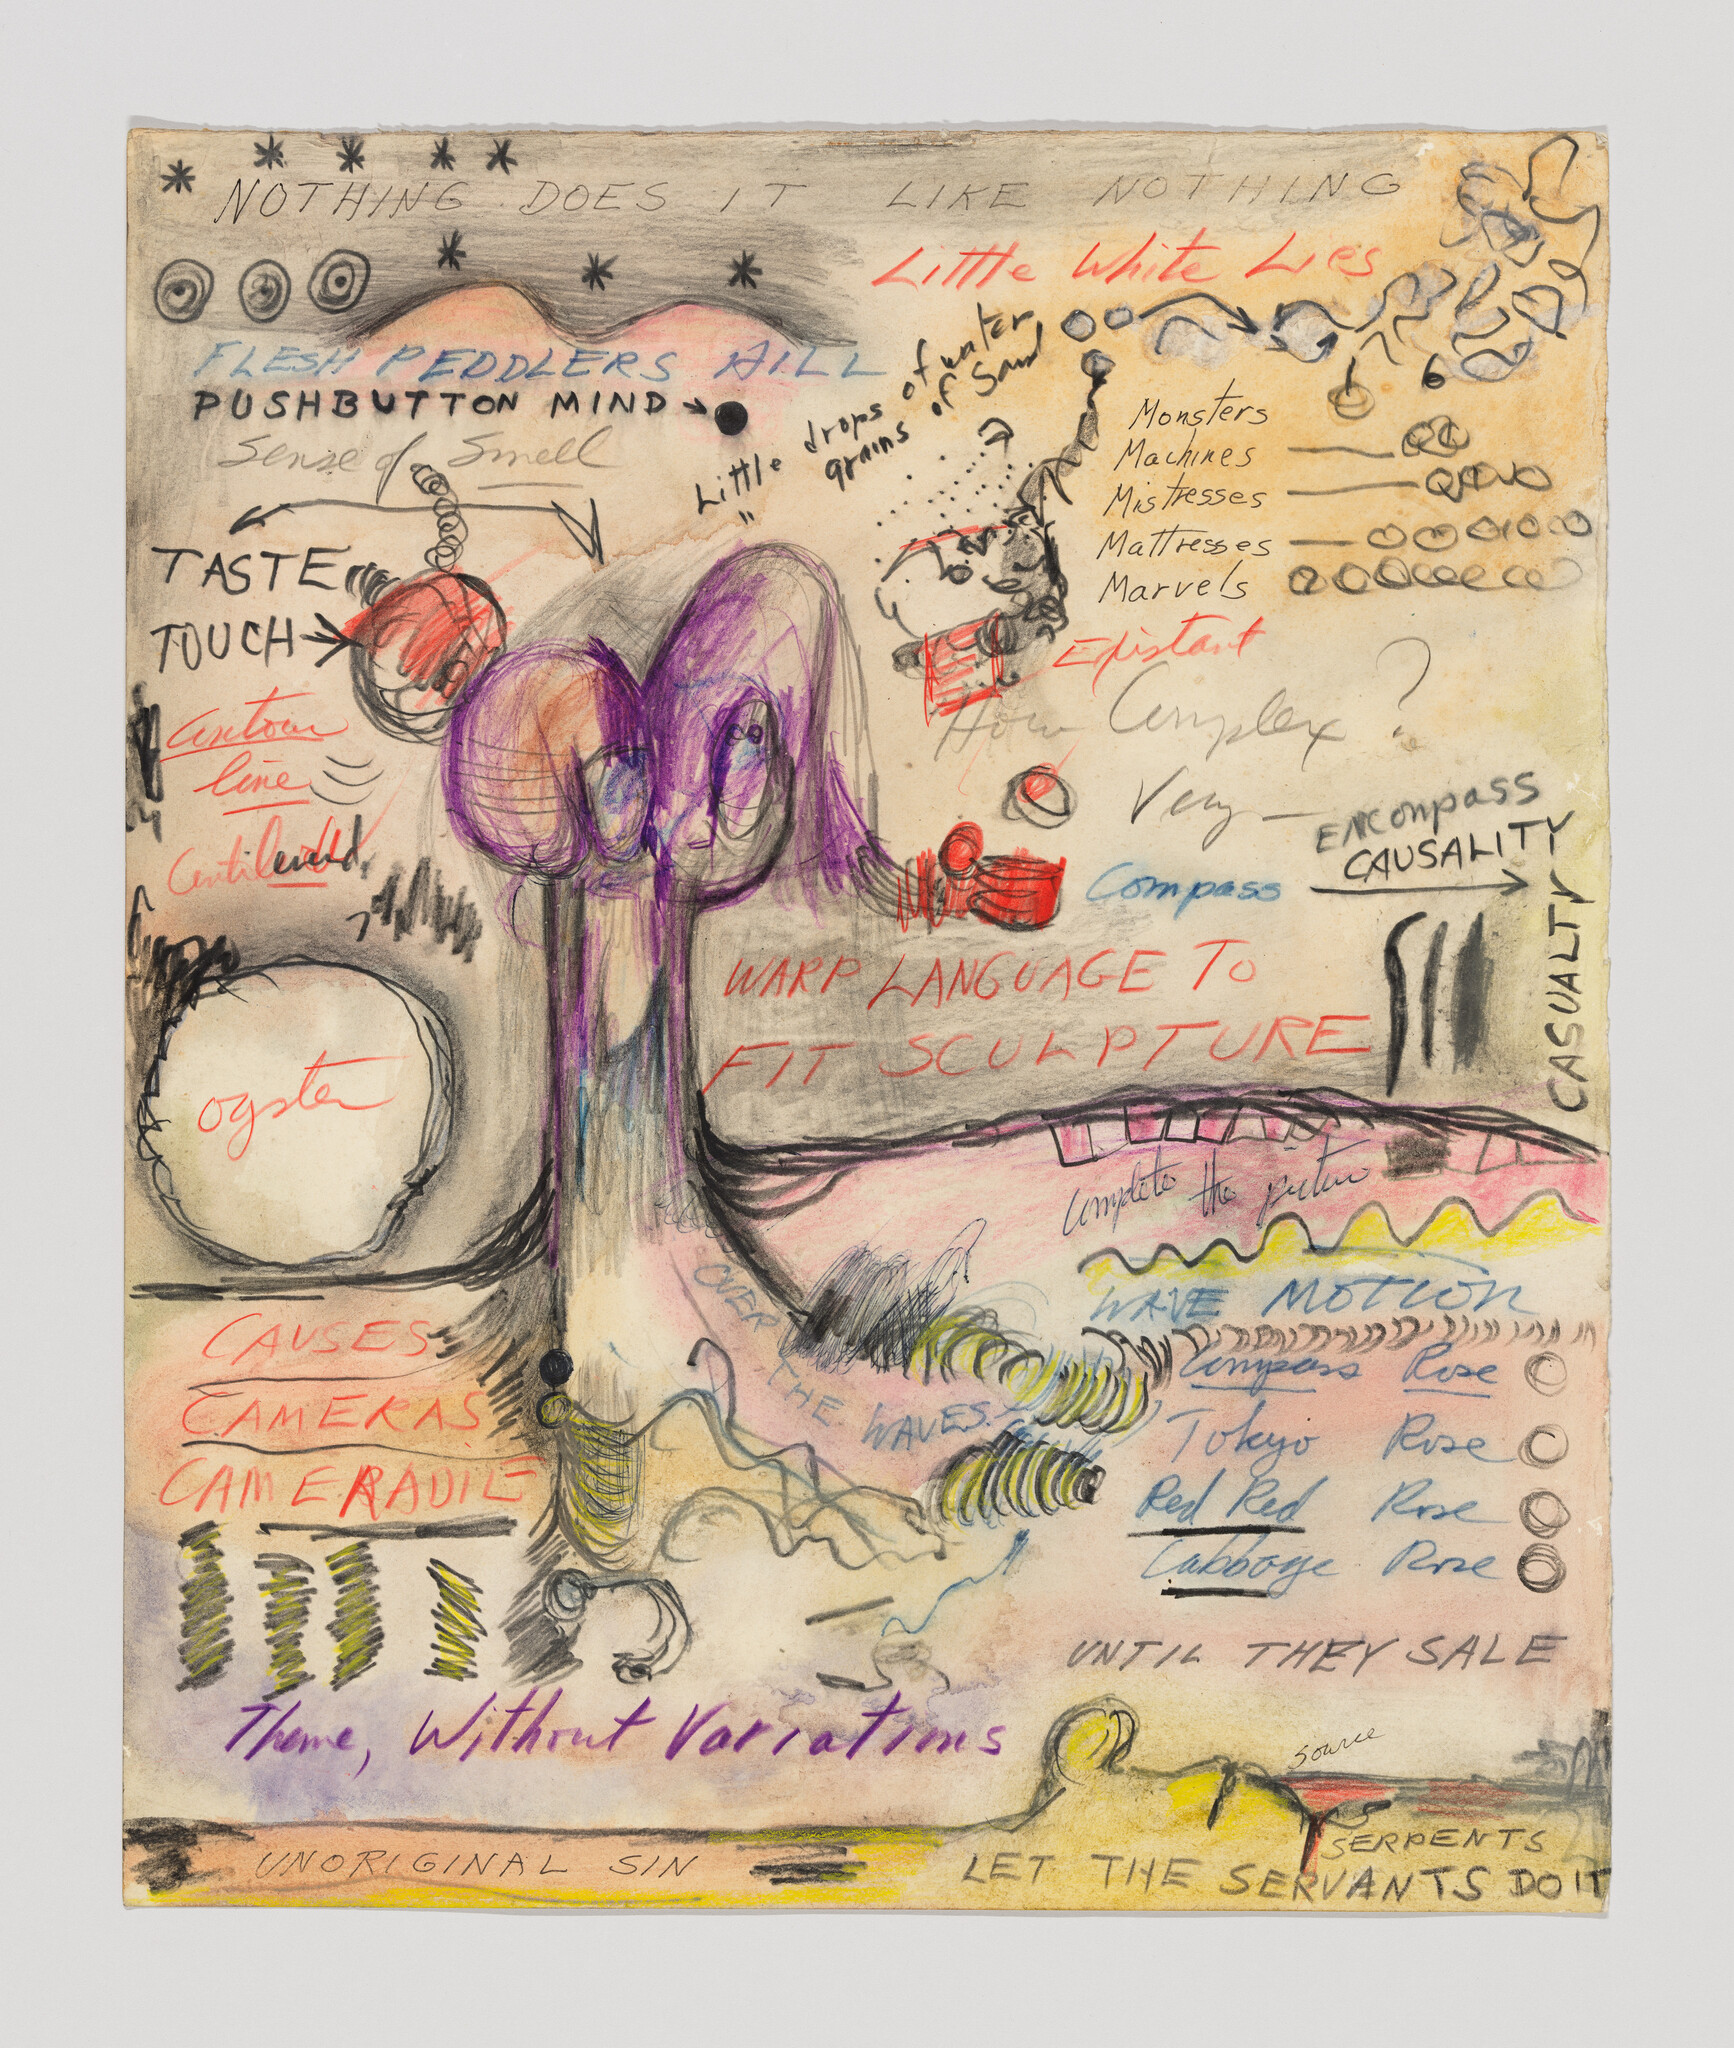 NOTHING DOES IT LIKE NOTHING
Little White Lies
FLESH PEDDLERS HILL
PUSHBUTTON MIND
Sense of Smell
Little drops of water
" grains of Sand
1 6
Monsters
Machines
Mistresses
Mattresses
Marvels
TASTE
TOUCH
How Complex?
Very
contour
line
ENCOMPASS
CAUSALITY
CASUALTY
Compass
WARP LANGUAGE TO
FIT SCULPTURE
oyster
Complete the picture
OVER THE WAVES
WAVE MOTION
Compass Rose
Tokyo Rose
Red Red Rose
Cabbage Rose
CAUSES
CAMERAS
UNTIL THEY SALE
Theme, Without Variations
source
UNORIGINAL SIN
SERPENTS
LET THE SERVANTS DO IT